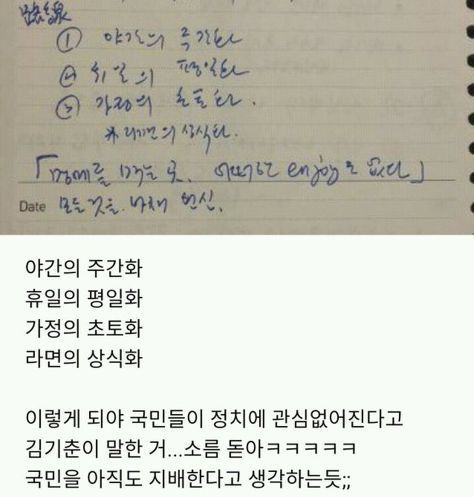 ① 야간의 주간화
② 휴일의 평일화
③ 가정의 초토화.
*라면의 상식화.
「명예를 먹는 곳. 어떠한 enjoy도 없다」
Date 모든 것을 바쳐 헌신.
야간의 주간화
휴일의 평일화
가정의 초토화
라면의 상식화
이렇게 되야 국민들이 정치에 관심없어진다고
김기춘이 말한 거...소름 돋아ㅋㅋㅋㅋㅋ
국민을 아직도 지배한다고 생각하는듯;;